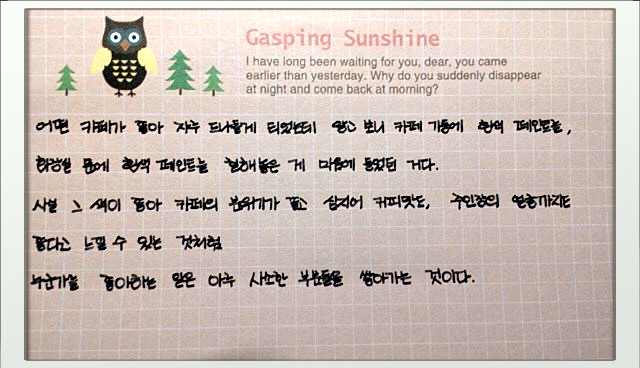 Gasping Sunshine
I have long been waiting for you, dear, you came
earlier than yesterday. Why do you suddenly disappear
at night and come back at morning?
어떤 카페가 좋아 자주 드나들게 되었는데 알고 보니 카페 기둥에 흰색 페인트를,
화장실 문에 흰색 페인트를 칠해놓은 게 마음에 들었던 거다.
사실 그 색이 좋아 카페의 분위기가 좋고 심지어 커피맛도, 주인장의 얼굴까지도
좋다고 느낄 수 있는 것처럼
누군가를 좋아하는 일은 아주 사소한 부분들을 쌓아가는 것이다.